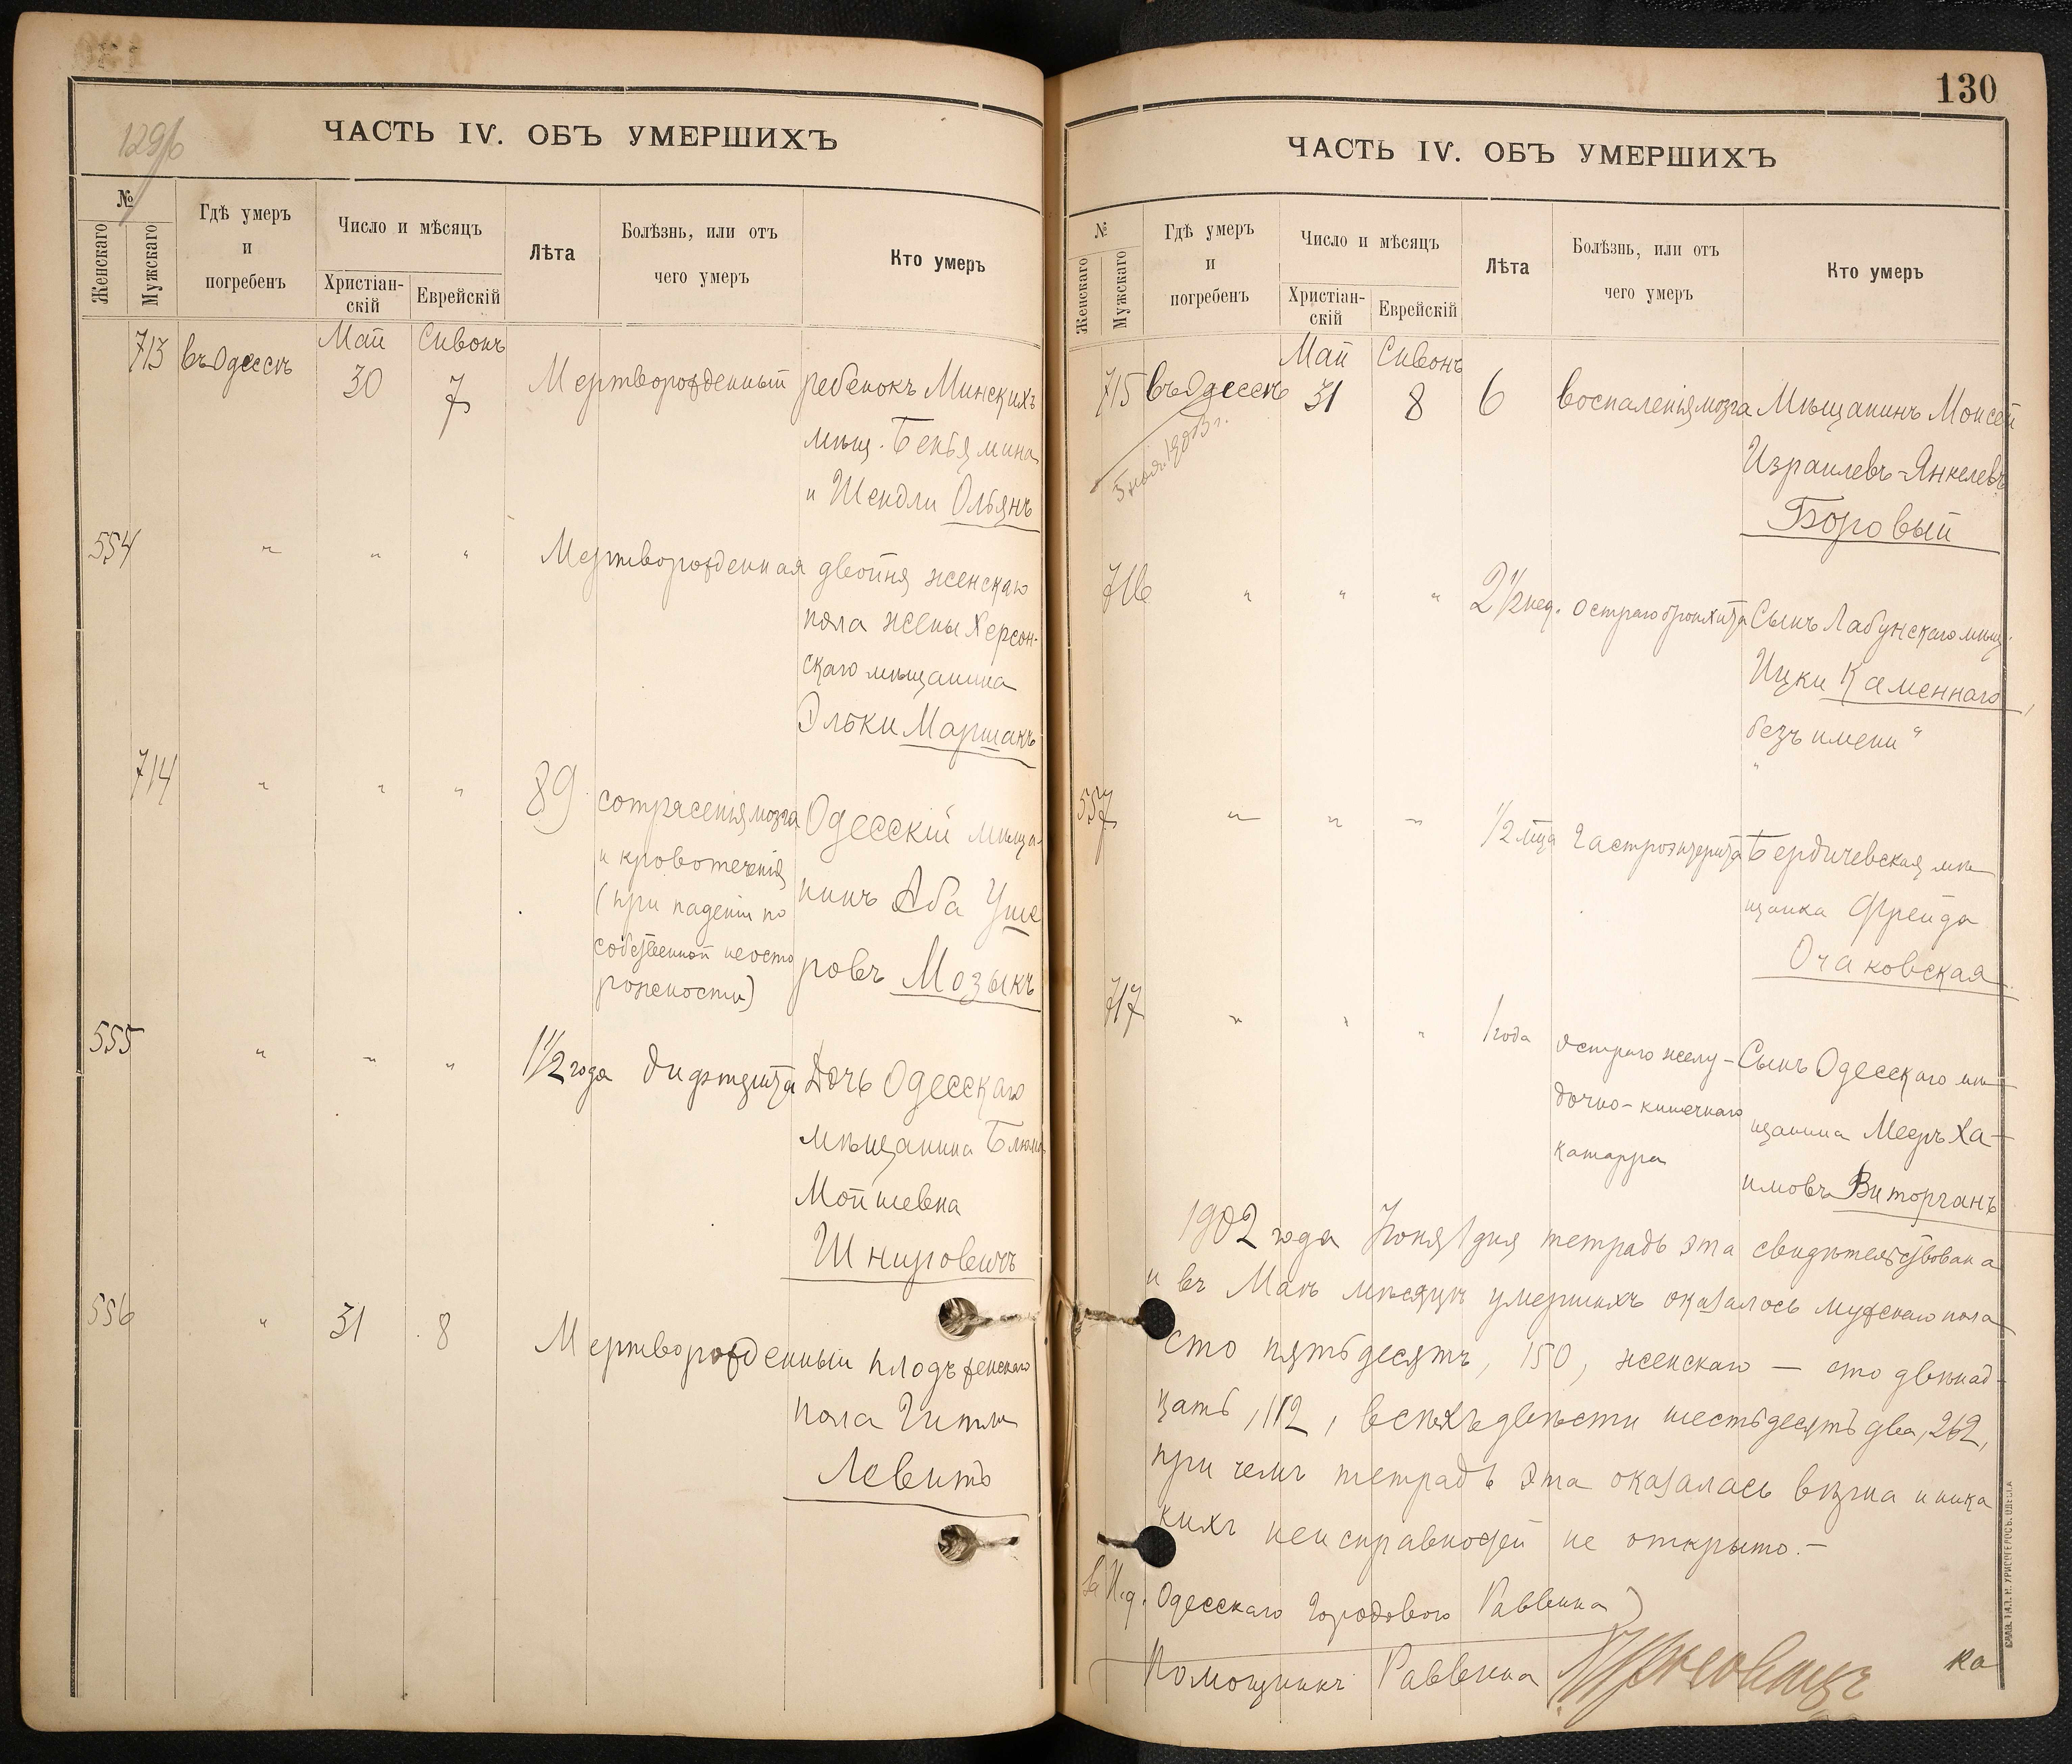 129 об
ЧАСТЬ IV. ОБЪ УМЕРШИХЪ
№
Женскаго
Мужскаго
Гдѣ умеръ
и
погребенъ
Число и мѣсяцъ
Христіан-
скій
Еврейскій
Лѣта
Болѣзнь, или отъ
чего умеръ
Кто умеръ
Май Сивонъ
713 въ Одессѣ 30 7 Мертворожденный ребенокъ Минскихъ
мѣщ. Беньямина
и Шендли Ольянъ
554 " " " Мертворожденная двойня женскаго
пола жены Херсон-
скаго мѣщанина
Эльки Маршакъ
714 " " " 89 сотрясенія мозга Одесскій мѣща-
и кровотеченія
(при паденіи по
нинъ Аба Уше
собственной неосто
ровъ Мозыкъ
рожности)
555 " " " 1 1/2 года дифтерита Дочь Одесскаго
мѣщанина Блюма
Мойшевна
Шнировичъ
556 " 31 8 Мертворожденный плодъ женскаго
пола Гитли
Левитъ
130
ЧАСТЬ IV. ОБЪ УМЕРШИХЪ
№
Женскаго
Мужскаго
Гдѣ умеръ
и
погребенъ
Число и мѣсяцъ
Христіан-
скій
Еврейскій
Лѣта
Болѣзнь, или отъ
чего умеръ
Кто умеръ
Май Сивонъ
715 въ Одессѣ 31 8 6 воспаленія мозга Мѣщанинъ Моисей
Израилевъ-Янкелевъ
Боровый
716 " " " 2 1/2 нед. остраго бронхита Сынъ Лабунскаго мѣщ.
Ицки Каменнаго,
безъ имени "
"
557 " " " 1/2 м-ца гастроэнтерита Бердичевская мѣ
щанка Фрейда
Очаковская
717 " " " 1 года остраго желу- Сынъ Одесскаго мѣ-
дочно-кишечнаго
щанина Мееръ Ха-
катарра
имовъ Виторганъ
1902 года Іюня 1 дня тетрадь эта свидѣтельствована
и въ Маѣ мѣсяцѣ умершихъ оказалось мужскаго пола
сто пятьдесятъ, 150, женскаго — сто двѣнад-
цать, 112, всѣхъ двѣсти шестьдесятъ два, 262,
при чемъ тетрадь эта оказалась вѣрна и ника
кихъ неисправностей не открыто.-
За И.д. Одесскаго Городового Раввина)
Помощникъ Раввина
ка